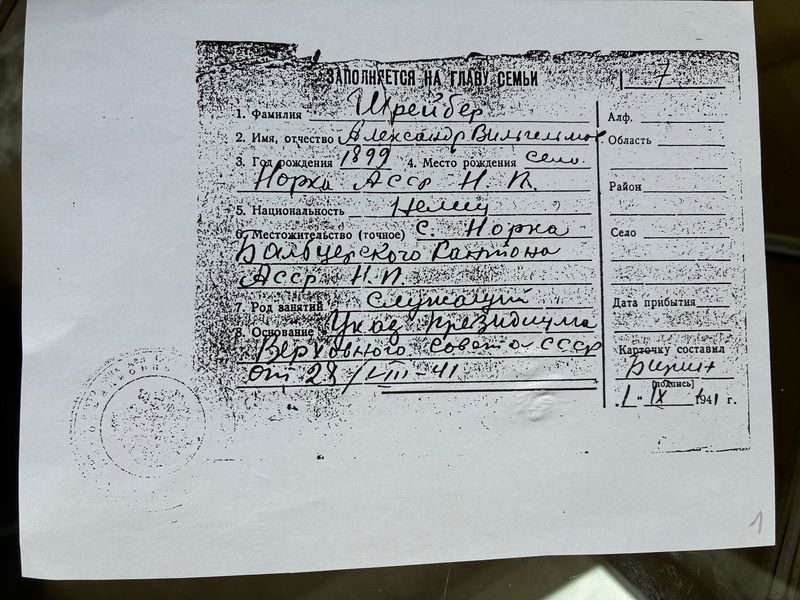 ЗАПОЛНЯЕТСЯ НА ГЛАВУ СЕМЬИ
7
1. Фамилия Шрейбер
2. Имя, отчество Александр Вильгельмов.
3. Год рождения 1899 4. Место рождения село
Норка АССР Н. П.
5. Национальность Немец
6. Местожительство (точное) с. Норка
Бальцерского Кантона
АССР Н. П.
7. Род занятий Служащий
8. Основание Указ Президиума
Верховного Совета СССР
от 28/VIII-41
Алф.
Область
Район
Село
Дата прибытия
Карточку составил
[подпись]
"1" IX 1941 г.
1